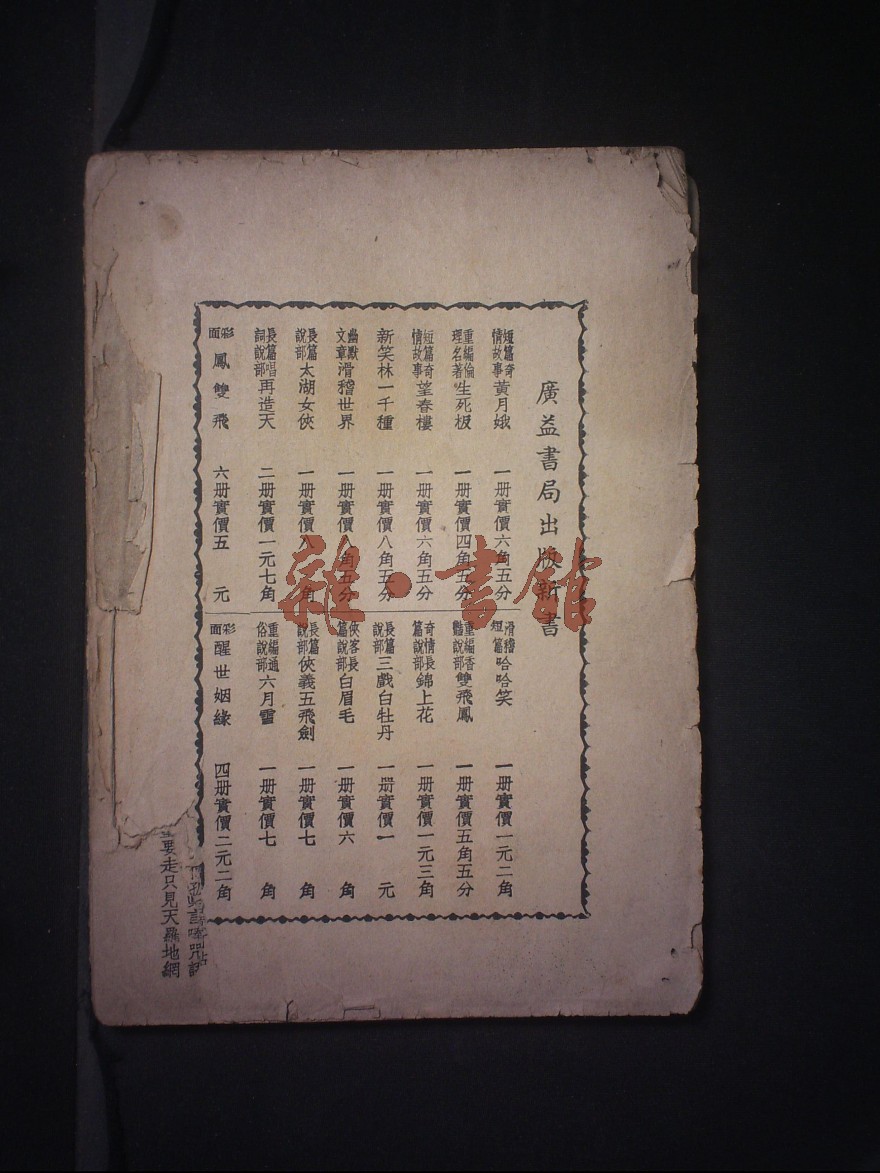 廣益書局出版新書
短篇奇情故事 黃月娥 一册實價六角五分
重編倫理名著 生死板 一册實價四角五分
短篇奇情故事 望春樓 一册實價六角五分
新笑林一千種 一册實價八角五分
幽默文章 滑稽世界 一册實價八角五分
長篇說部 太湖女俠 一册實價八角
長篇唱詞說部 再造天 二册實價一元七角
彩面 鳳雙飛 六册實價五元
滑稽短篇 哈哈笑 一册實價一元二角
重編香豔說部 雙飛鳳 一册實價五角五分
奇情長篇說部 錦上花 一册實價一元三角
長篇說部 三戲白牡丹 一册實價一元
俠客長篇說部 白眉毛 一册實價六角
長篇說部 俠義五飛劍 一册實價七角
重編通俗說部 六月雪 一册實價七角
彩面 醒世姻緣 四册實價二元二角
要走只見天羅地網
雜·書館